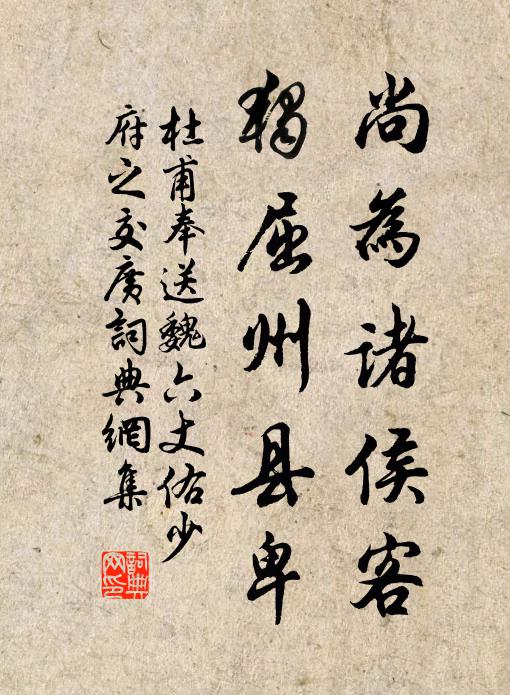 尚為诸侯客
独屈州县卑
杜甫奉送魏六丈佑少
府之交廣詞典網集
詞典
网印